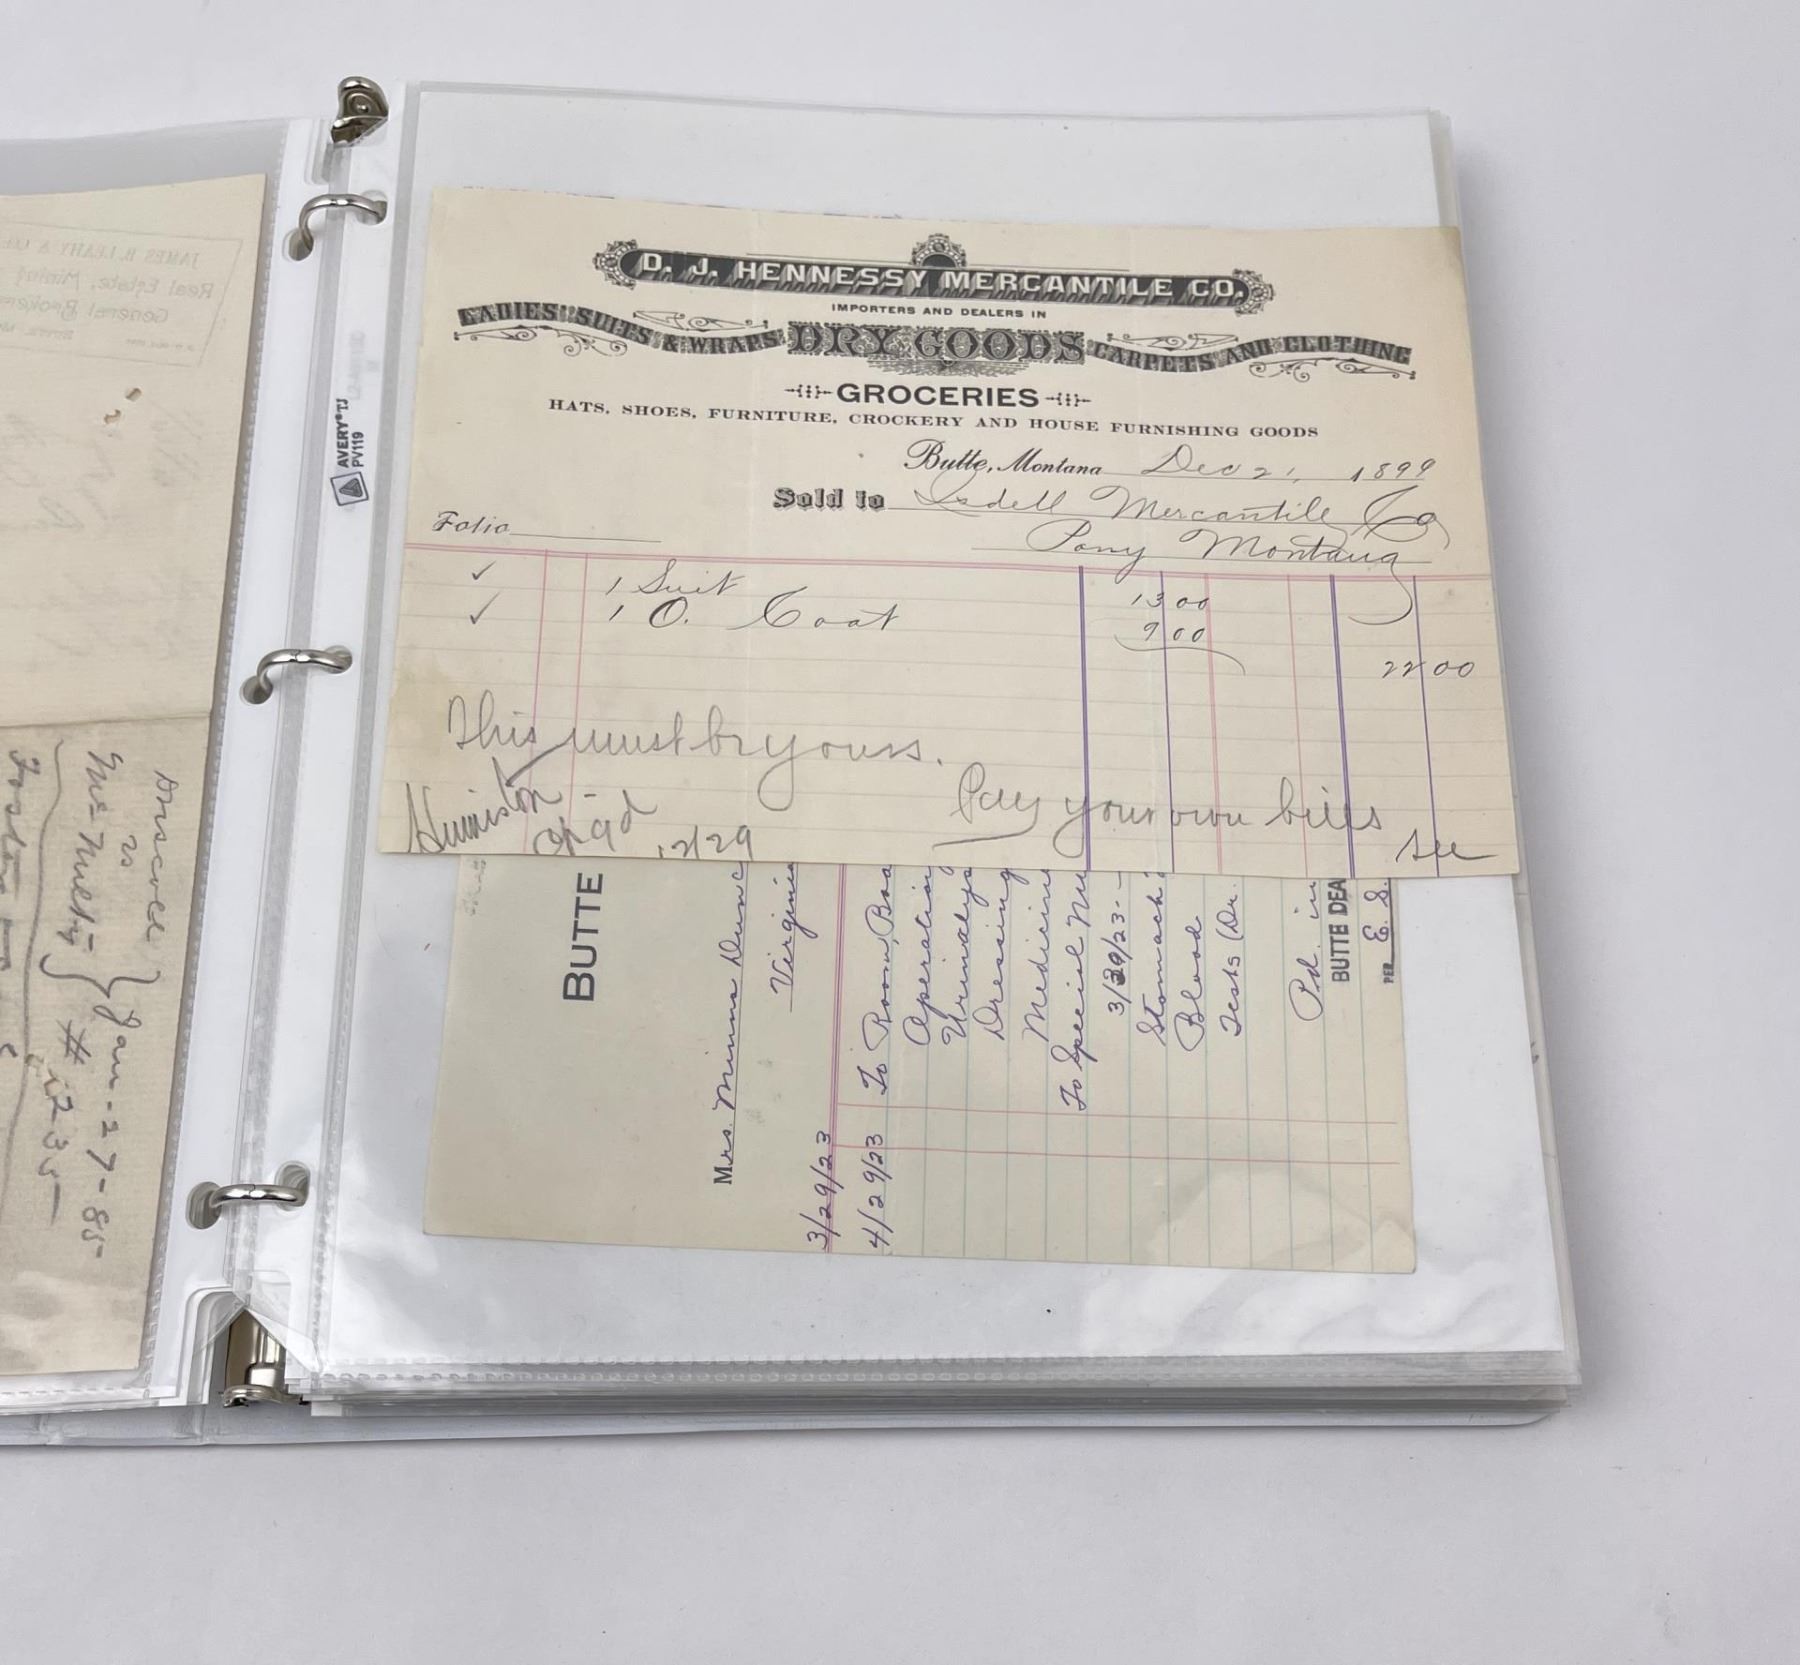 D. J. HENNESSY MERCANTILE CO.
IMPORTERS AND DEALERS IN
LADIES' SUITS & WRAPS DRY GOODS CARPETS AND CLOTHING
GROCERIES
HATS, SHOES, FURNITURE, CROCKERY AND HOUSE FURNISHING GOODS
Butte, Montana Dec 21, 1899
Sold to Isdell Mercantile Co
Folio
Pony Montana
✓ 1 Suit 13 00
✓ 1 O. Coat 9 00
22 00
This must be yours.
Pay your own bills
Humiston
12/29
BUTTE
Mrs. Minna Dunc
Virginia
3/29/23
4/29/23 To Room, Boa
Operation
Urinalys
Dressing
Medicine
To Special Nu
3/29/23-
Stomach
Blood
Tests (Dr.
Pd. in
BUTTE DEA
PER E. S.
AVERY® TJ
PV119
JAMES H. LEAHY & CO.
Real Estate, Mining
General Broker
Driscoll
vs
Jan-27-85-
# 1235-